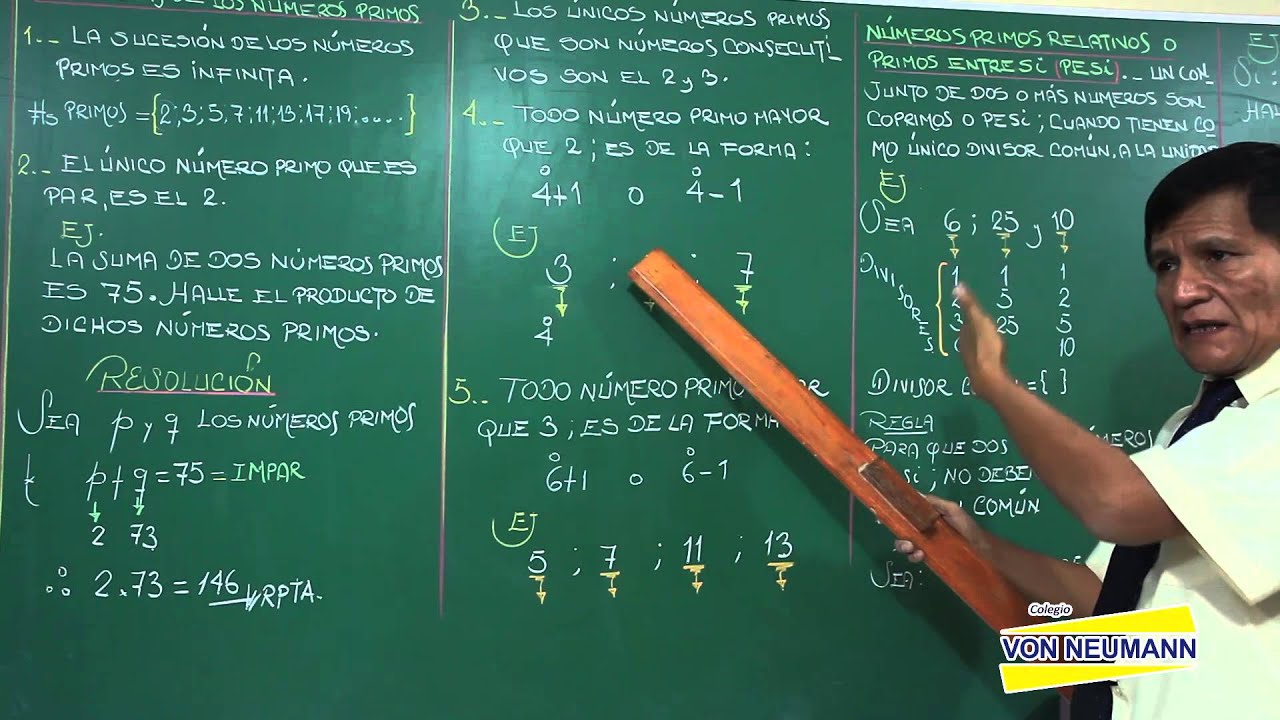 DE LOS NÚMEROS PRIMOS
1._ LA SUCESIÓN DE LOS NÚMEROS
PRIMOS ES INFINITA.
#s PRIMOS = {2;3;5,7;11;13;17;19;.....}
2._ EL ÚNICO NÚMERO PRIMO QUE ES
PAR, ES EL 2.
EJ.
LA SUMA DE DOS NÚMEROS PRIMOS
ES 75. HALLE EL PRODUCTO DE
DICHOS NÚMEROS PRIMOS.
RESOLUCIÓN
SEA p y q LOS NÚMEROS PRIMOS
p + q = 75 = IMPAR
2 73
∴ 2 x 73 = 146 RPTA.
3._ LOS ÚNICOS NÚMEROS PRIMOS
QUE SON NÚMEROS CONSECUTI-
VOS SON EL 2 y 3.
4._ TODO NÚMERO PRIMO MAYOR
QUE 2; ES DE LA FORMA:
4̊+1 o 4̊-1
EJ
3 ; ; 7
4̊
5._ TODO NÚMERO PRIMO
QUE 3; ES DE LA FORMA
6̊+1 o 6̊-1
EJ
5 ; 7 ; 11 ; 13
NÚMEROS PRIMOS RELATIVOS O
PRIMOS ENTRE SÍ (PESI)._ UN CON-
JUNTO DE DOS O MÁS NUMEROS SON
COPRIMOS O PESI; CUANDO TIENEN CO
MO ÚNICO DIVISOR COMÚN, A LA UNIDAD
EJ
SEA 6 ; 25 y 10
DIVISORES
1 1 1
2 5 2
3 25 5
10
DIVISOR = { }
REGLA
PARA QUE DOS NÚMEROS
NO DEBEN
COMÚN
SEA:
EJ
Si:
HAL
Colegio
VON NEUMANN